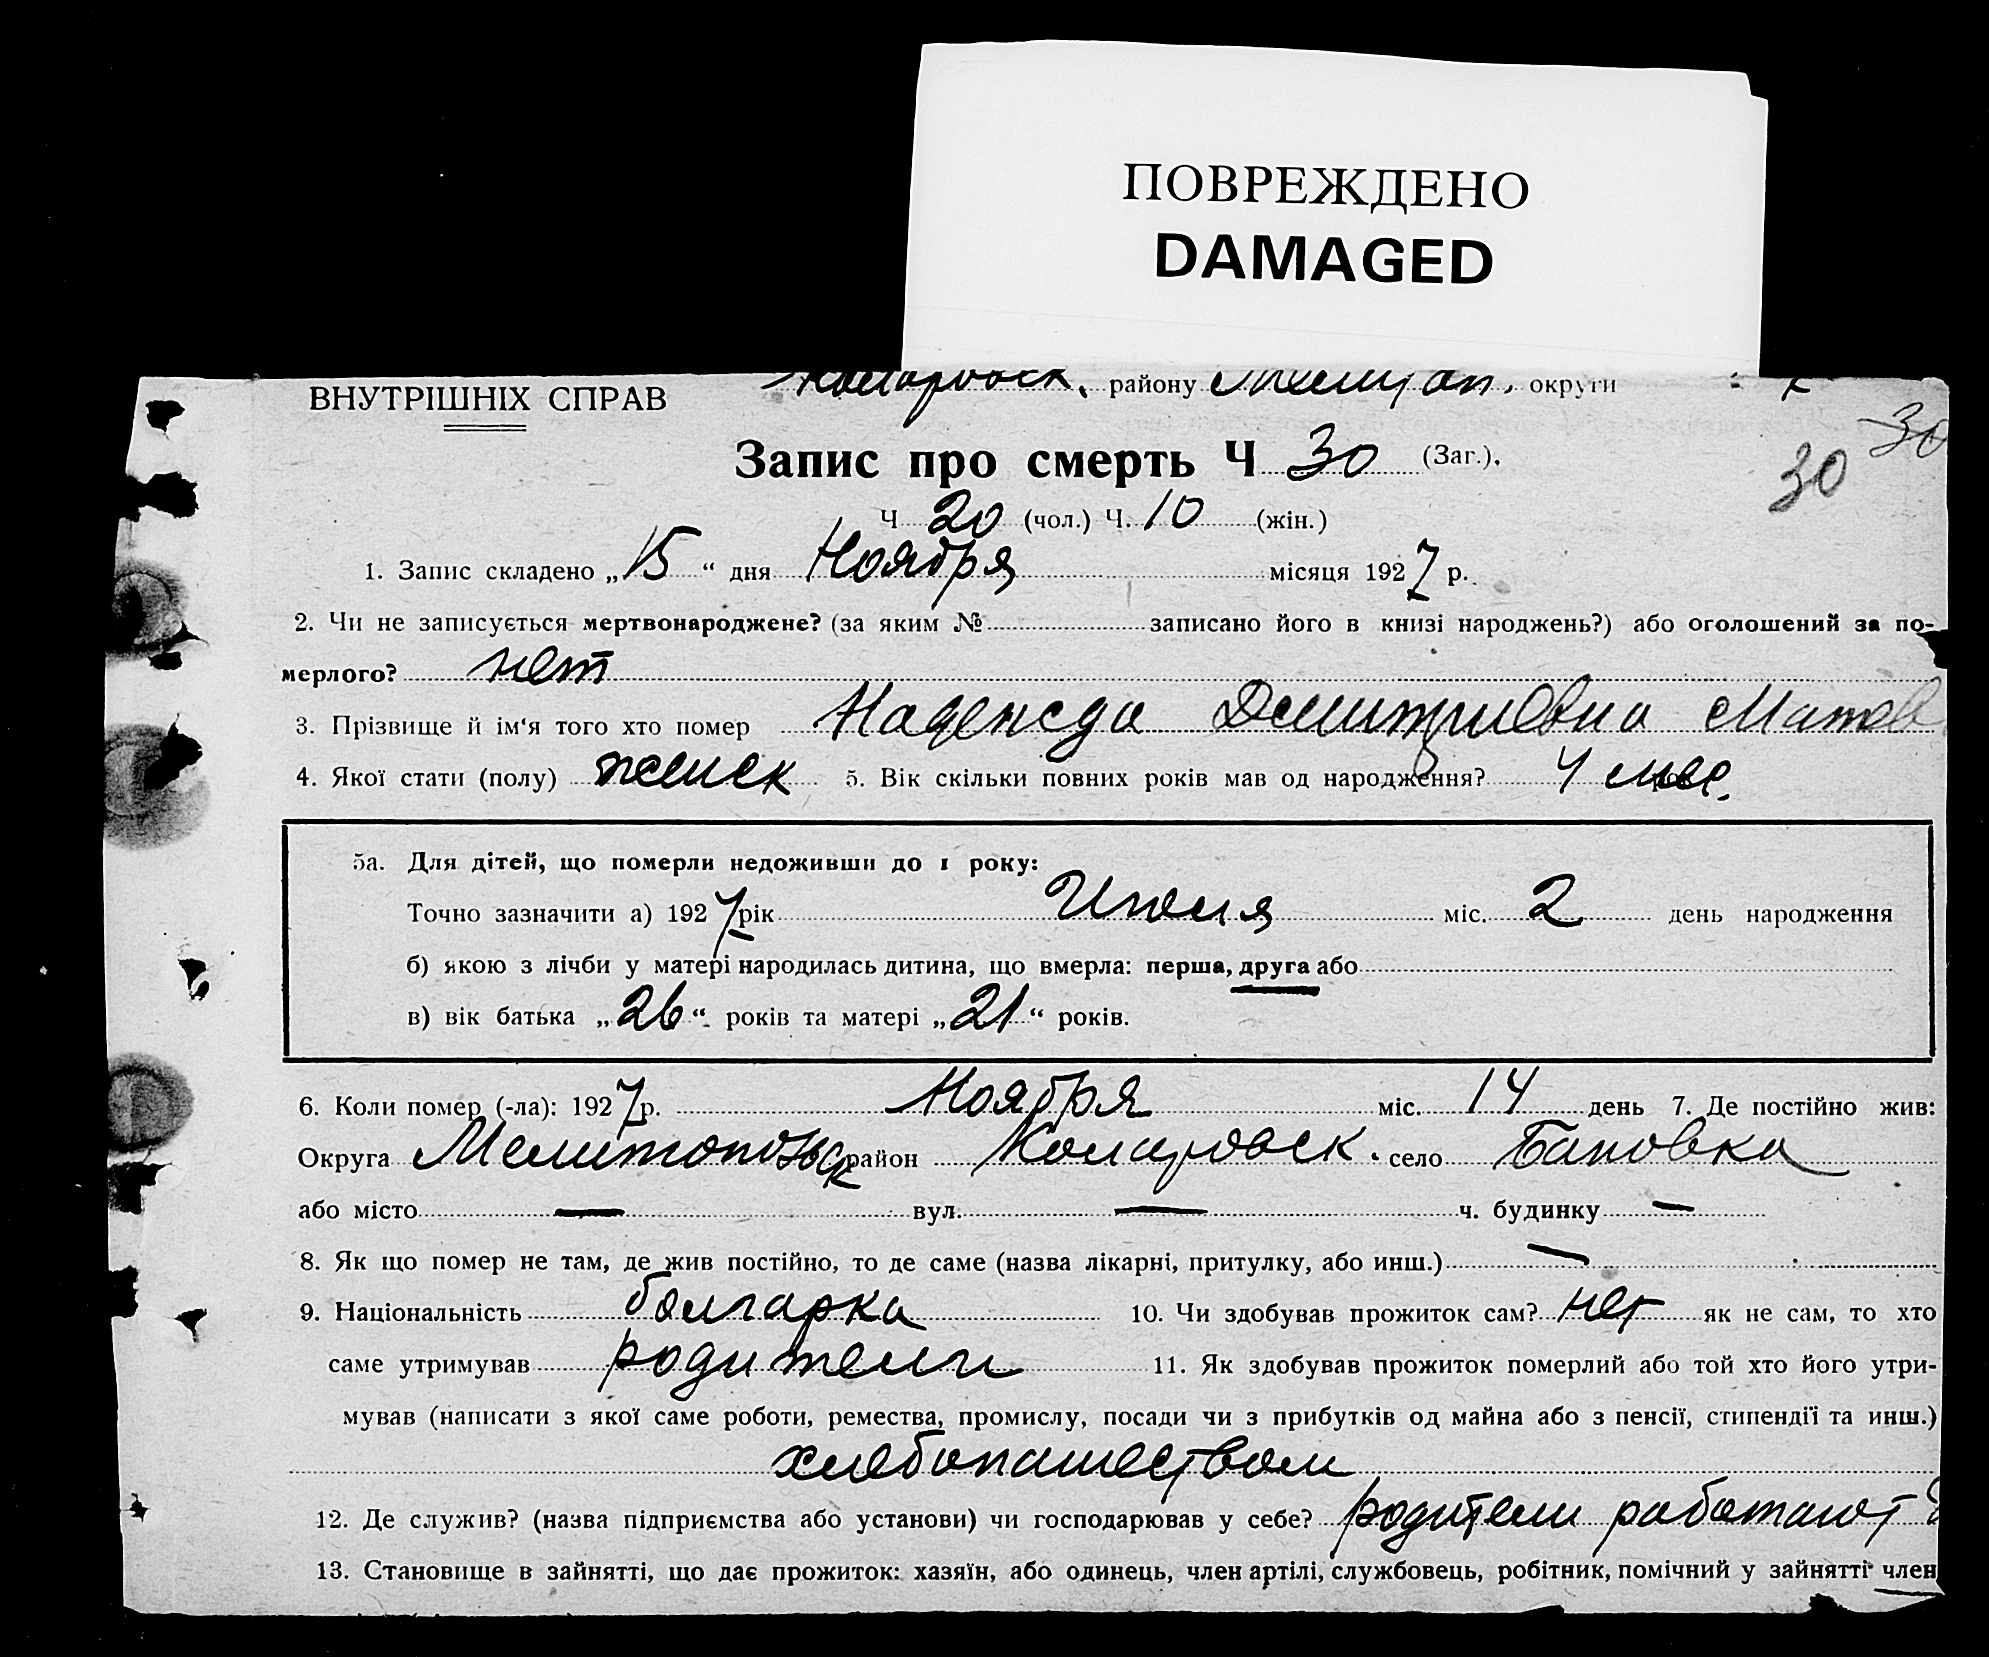 ПОВРЕЖДЕНО
DAMAGED
ВНУТРІШНІХ СПРАВ району округи
Запис про смерть Ч 30 (Заг.).
30 30
Ч 20 (чол.) Ч. 10 (жін.)
1. Запис складено „15“ дня Ноября місяця 1927 р.
2. Чи не записується мертвонароджене? (за яким № записано його в книзі народжень?) або оголошений за по-
мерлого? нет
3. Прізвище й ім'я того хто помер Надежда Дмитриевна Матов
4. Якої стати (полу) женск 5. Вік скільки повних років мав од народження? 4 мес.
5а. Для дітей, що померли недоживши до 1 року:
Точно зазначити а) 1927 рік Июля міс. 2 день народження
б) якою з лічби у матері народилась дитина, що вмерла: перша, друга або
в) вік батька „26“ років та матері „21“ років.
6. Коли помер (-ла): 1927 р. Ноября міс. 14 день 7. Де постійно жив:
Округа Мелитопольск район Комаровск. село Бановка
або місто — вул. — ч. будинку —
8. Як що помер не там, де жив постійно, то де саме (назва лікарні, притулку, або инш.) —
9. Національність болгарка 10. Чи здобував прожиток сам? нет як не сам, то хто
саме утримував родители 11. Як здобував прожиток померлий або той хто його утри-
мував (написати з якої саме роботи, ремества, промислу, посади чи з прибутків од майна або з пенсії, стипендії та инш.)
хлебопашеством
12. Де служив? (назва підприємства або установи) чи господарював у себе? родители работают
13. Становище в зайнятті, що дає прожиток: хазяїн, або одинець, член артілі, службовець, робітник, помічний у зайнятті член